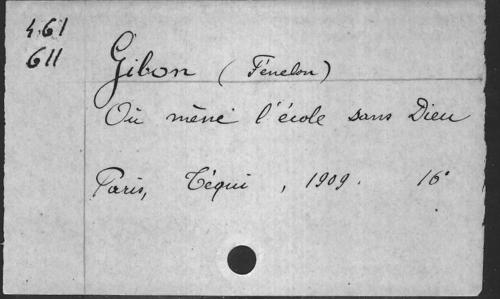 461
611
Gibon (Fénelon)
Où mène l'école sans Dieu
Paris, Téqui, 1909. 16°